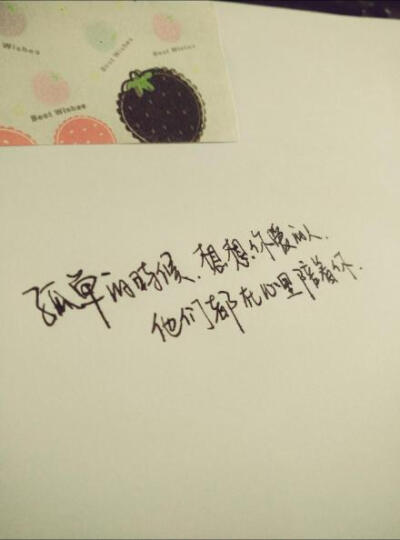 Wishes
Best Wishes
Best Wishes
Best Wishes
孤单的时候.想想你爱的人.
他们都在心里陪着你.